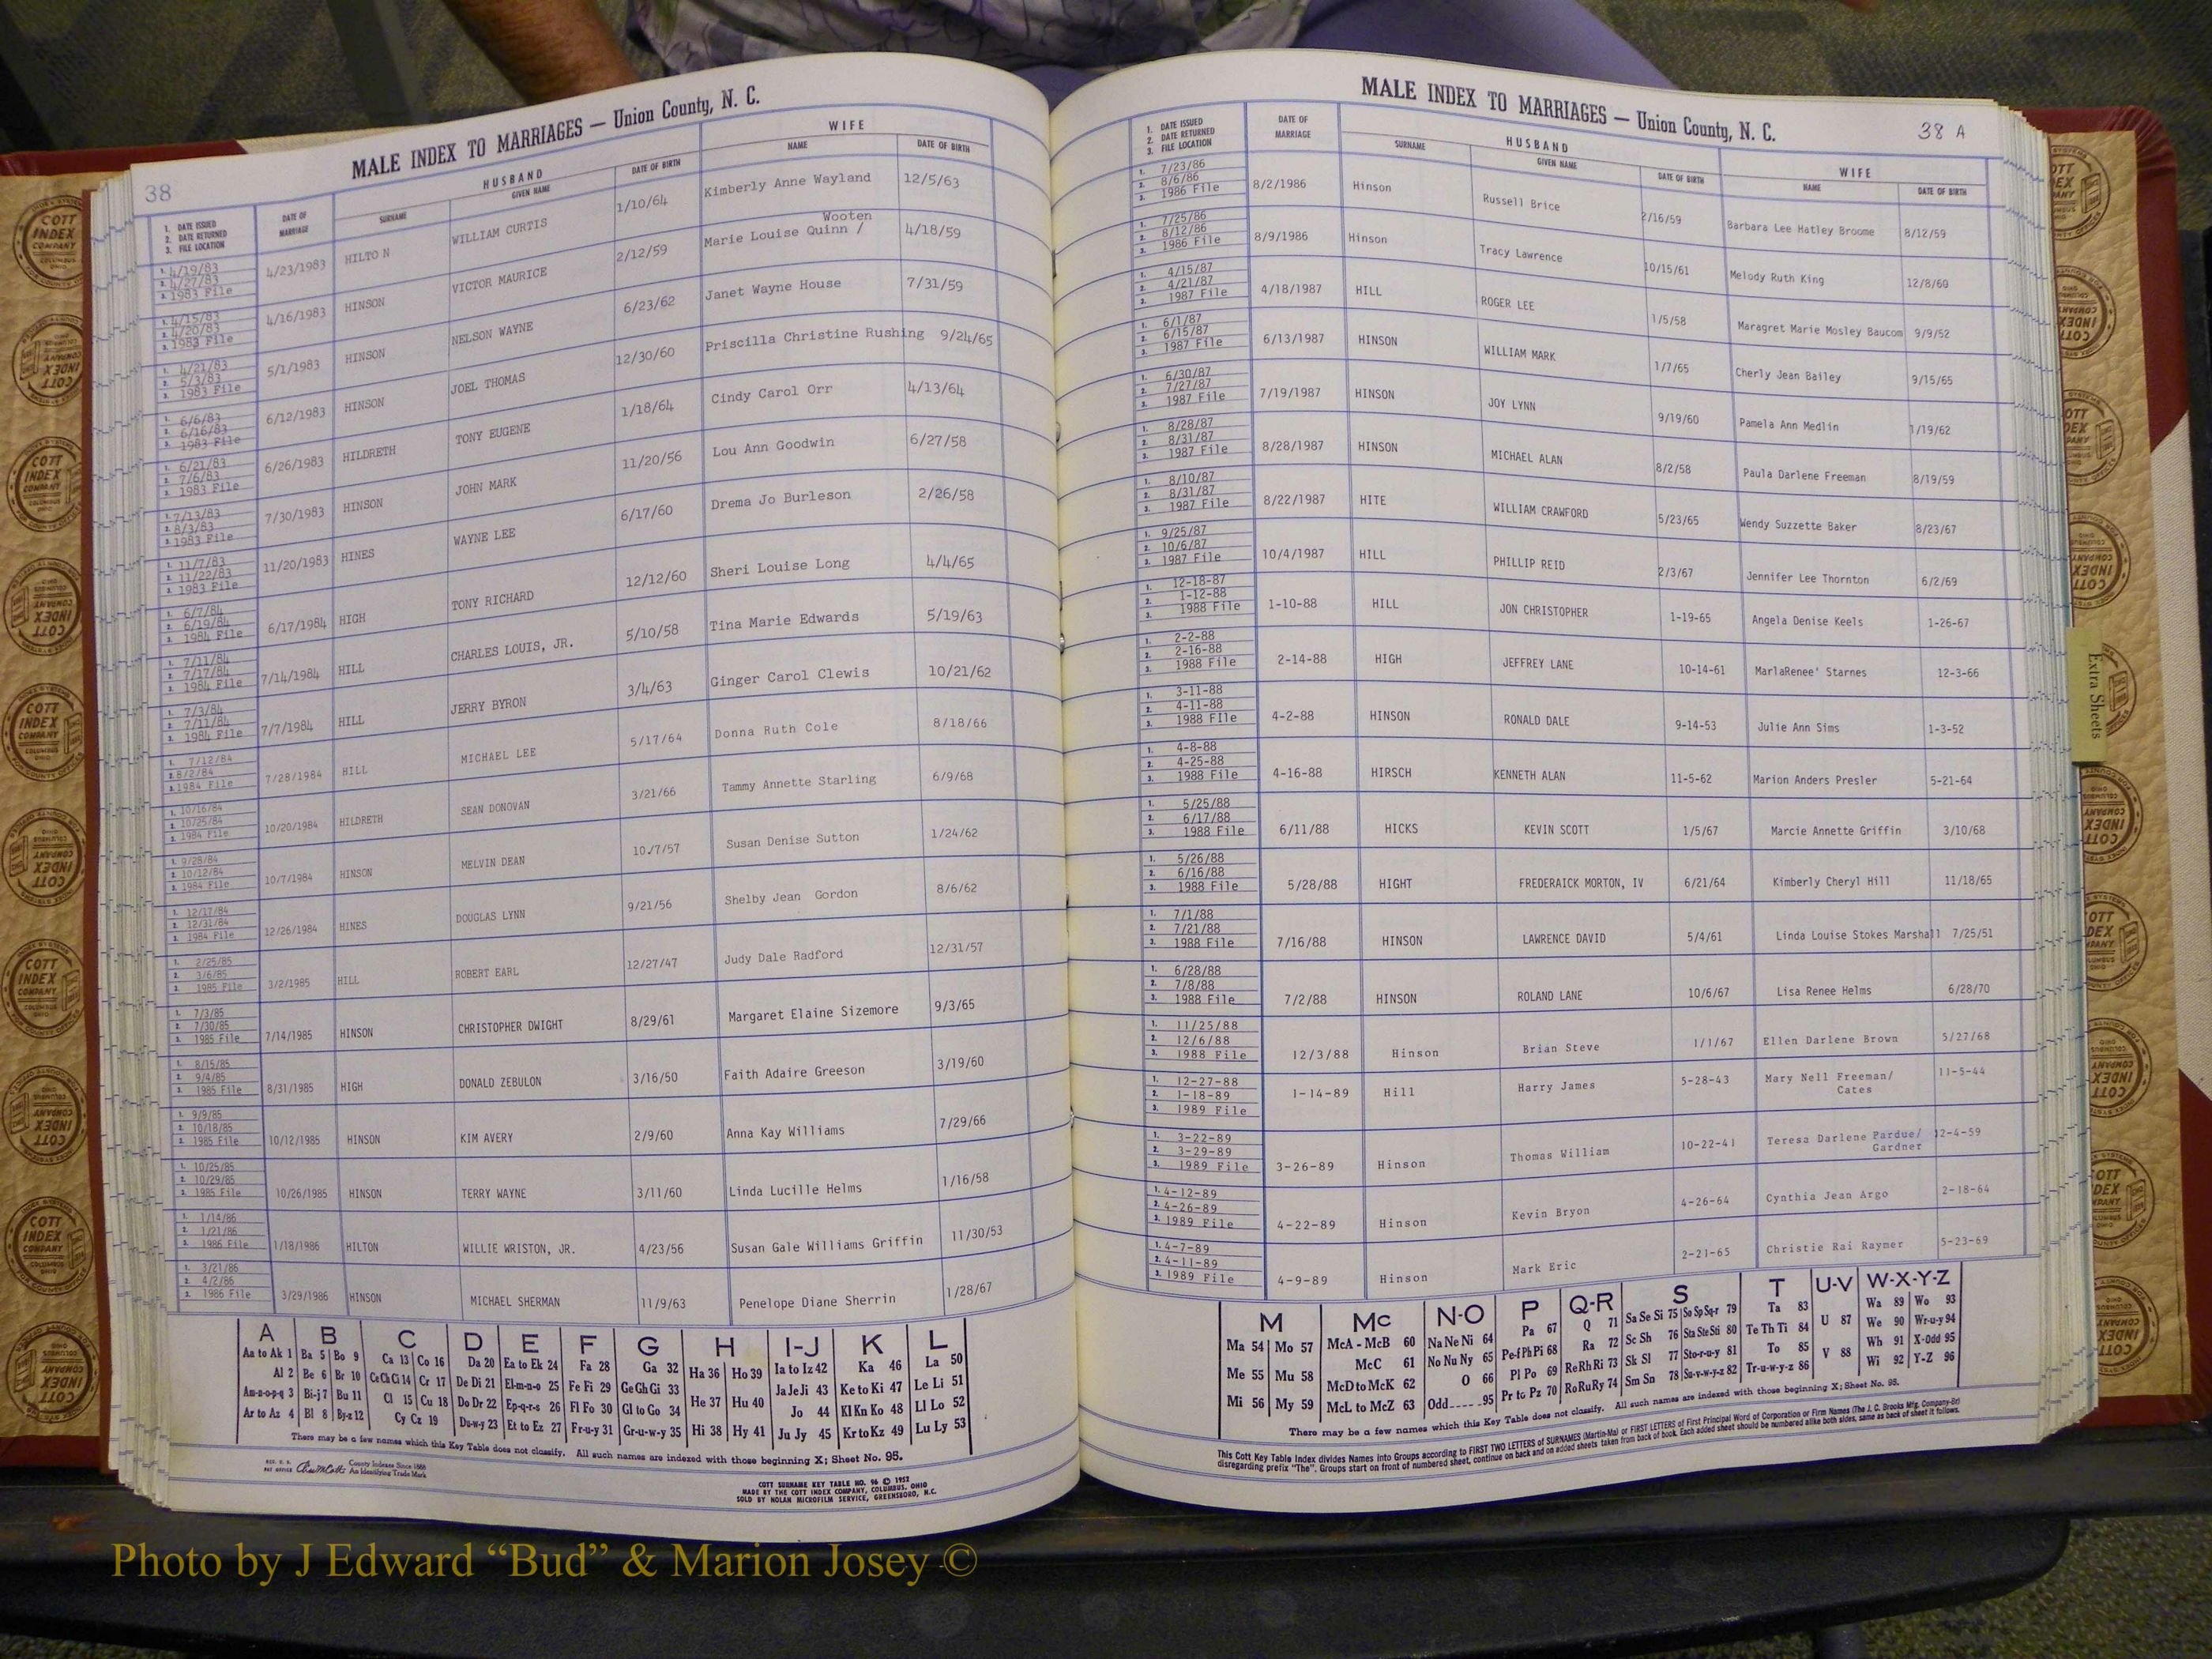 38
MALE INDEX TO MARRIAGES — Union County, N. C.
HUSBAND WIFE
1. DATE ISSUED 2. DATE RETURNED 3. FILE LOCATION DATE OF MARRIAGE SURNAME GIVEN NAME DATE OF BIRTH NAME DATE OF BIRTH
1. 4/19/83 2. 4/27/83 3. 1983 File 4/23/1983 HILTO N WILLIAM CURTIS 1/10/64 Kimberly Anne Wayland 12/5/63
1. 4/15/83 2. 4/20/83 3. 1983 File 4/16/1983 HINSON VICTOR MAURICE 2/12/59 Marie Louise Quinn / Wooten 4/18/59
1. 4/21/83 2. 5/3/83 3. 1983 File 5/1/1983 HINSON NELSON WAYNE 6/23/62 Janet Wayne House 7/31/59
1. 6/6/83 2. 6/16/83 3. 1983 File 6/12/1983 HINSON JOEL THOMAS 12/30/60 Priscilla Christine Rushing 9/24/65
1. 6/21/83 2. 7/6/83 3. 1983 File 6/26/1983 HILDRETH TONY EUGENE 1/18/64 Cindy Carol Orr 4/13/64
1. 7/13/83 2. 8/3/83 3. 1983 File 7/30/1983 HINSON JOHN MARK 11/20/56 Lou Ann Goodwin 6/27/58
1. 11/7/83 2. 11/22/83 3. 1983 File 11/20/1983 HINES WAYNE LEE 6/17/60 Drema Jo Burleson 2/26/58
1. 6/7/84 2. 6/19/84 3. 1984 File 6/17/1984 HIGH TONY RICHARD 12/12/60 Sheri Louise Long 4/4/65
1. 7/11/84 2. 7/17/84 3. 1984 File 7/14/1984 HILL CHARLES LOUIS, JR. 5/10/58 Tina Marie Edwards 5/19/63
1. 7/3/84 2. 7/11/84 3. 1984 File 7/7/1984 HILL JERRY BYRON 3/4/63 Ginger Carol Clewis 10/21/62
1. 7/12/84 2. 8/2/84 3. 1984 File 7/28/1984 HILL MICHAEL LEE 5/17/64 Donna Ruth Cole 8/18/66
1. 10/16/84 2. 10/25/84 3. 1984 File 10/20/1984 HILDRETH SEAN DONOVAN 3/21/66 Tammy Annette Starling 6/9/68
1. 9/28/84 2. 10/12/84 3. 1984 File 10/7/1984 HINSON MELVIN DEAN 10/7/57 Susan Denise Sutton 1/24/62
1. 12/17/84 2. 12/31/84 3. 1984 File 12/26/1984 HINES DOUGLAS LYNN 9/21/56 Shelby Jean Gordon 8/6/62
1. 2/25/85 2. 3/6/85 3. 1985 File 3/2/1985 HILL ROBERT EARL 12/27/47 Judy Dale Radford 12/31/57
1. 7/3/85 2. 7/30/85 3. 1985 File 7/14/1985 HINSON CHRISTOPHER DWIGHT 8/29/61 Margaret Elaine Sizemore 9/3/65
1. 8/15/85 2. 9/4/85 3. 1985 File 8/31/1985 HIGH DONALD ZEBULON 3/16/50 Faith Adaire Greeson 3/19/60
1. 9/9/85 2. 10/18/85 3. 1985 File 10/12/1985 HINSON KIM AVERY 2/9/60 Anna Kay Williams 7/29/66
1. 10/25/85 2. 10/29/85 3. 1985 File 10/26/1985 HINSON TERRY WAYNE 3/11/60 Linda Lucille Helms 1/16/58
1. 1/14/86 2. 1/21/86 3. 1986 File 1/18/1986 HILTON WILLIE WRISTON, JR. 4/23/56 Susan Gale Williams Griffin 11/30/53
1. 3/21/86 2. 4/2/86 3. 1986 File 3/29/1986 HINSON MICHAEL SHERMAN 11/9/63 Penelope Diane Sherrin 1/28/67
A B C D E F G H I-J K L
Aa to Ak 1 Ba 5 Bo 9 Ca 13 Co 16 Da 20 Ea to Ek 24 Fa 28 Ga 32 Ha 36 Ho 39 Ia to Iz 42 Ka 46 La 50
Al 2 Be 6 Br 10 Ce Ch Ci 14 Cr 17 De Di 21 El-m-n-o 25 Fe Fi 29 Ge Gh Gi 33 He 37 Hu 40 Ja Je Ji 43 Ke to Ki 47 Le Li 51
Am-n-o-p-q 3 Bi-j 7 Bu 11 Cl 15 Cu 18 Do Dr 22 Ep-q-r-s 26 Fl Fo 30 Gl to Go 34 Hi 38 Hy 41 Jo 44 Kl Kn Ko 48 Ll Lo 52
Ar to Az 4 Bl 8 By-z 12 Cy Cz 19 Du-w-y 23 Et to Ez 27 Fr-u-y 31 Gr-u-w-y 35 Ju Jy 45 Kr to Kz 49 Lu Ly 53
There may be a few names which this Key Table does not classify. All such names are indexed with those beginning X; Sheet No. 95.
County Indexes Since 1888
An Identifying Trade Mark
COTT SURNAME KEY TABLE NO. 96 © 1952
MADE BY THE COTT INDEX COMPANY, COLUMBUS, OHIO
SOLD BY NOLAN MICROFILM SERVICE, GREENSBORO, N.C.
MALE INDEX TO MARRIAGES — Union County, N. C.
38 A
HUSBAND WIFE
1. DATE ISSUED 2. DATE RETURNED 3. FILE LOCATION DATE OF MARRIAGE SURNAME GIVEN NAME DATE OF BIRTH NAME DATE OF BIRTH
1. 7/23/86 2. 8/6/86 3. 1986 File 8/2/1986 Hinson Russell Brice 2/16/59 Barbara Lee Hatley Broome 8/12/59
1. 7/25/86 2. 8/12/86 3. 1986 File 8/9/1986 Hinson Tracy Lawrence 10/15/61 Melody Ruth King 12/8/60
1. 4/15/87 2. 4/21/87 3. 1987 File 4/18/1987 HILL ROGER LEE 1/5/58 Maragret Marie Mosley Baucom 9/9/52
1. 6/1/87 2. 6/15/87 3. 1987 File 6/13/1987 HINSON WILLIAM MARK 1/7/65 Cherly Jean Bailey 9/15/65
1. 6/30/87 2. 7/27/87 3. 1987 File 7/19/1987 HINSON JOY LYNN 9/19/60 Pamela Ann Medlin 1/19/62
1. 8/28/87 2. 8/31/87 3. 1987 File 8/28/1987 HINSON MICHAEL ALAN 8/2/58 Paula Darlene Freeman 8/19/59
1. 8/10/87 2. 8/31/87 3. 1987 File 8/22/1987 HITE WILLIAM CRAWFORD 5/23/65 Wendy Suzzette Baker 8/23/67
1. 9/25/87 2. 10/6/87 3. 1987 File 10/4/1987 HILL PHILLIP REID 2/3/67 Jennifer Lee Thornton 6/2/69
1. 12-18-87 2. 1-12-88 3. 1988 File 1-10-88 HILL JON CHRISTOPHER 1-19-65 Angela Denise Keels 1-26-67
1. 2-2-88 2. 2-16-88 3. 1988 File 2-14-88 HIGH JEFFREY LANE 10-14-61 MarlaRenee' Starnes 12-3-66
1. 3-11-88 2. 4-11-88 3. 1988 FIle 4-2-88 HINSON RONALD DALE 9-14-53 Julie Ann Sims 1-3-52
1. 4-8-88 2. 4-25-88 3. 1988 File 4-16-88 HIRSCH KENNETH ALAN 11-5-62 Marion Anders Presler 5-21-64
1. 5/25/88 2. 6/17/88 3. 1988 File 6/11/88 HICKS KEVIN SCOTT 1/5/67 Marcie Annette Griffin 3/10/68
1. 5/26/88 2. 6/16/88 3. 1988 File 5/28/88 HIGHT FREDERAICK MORTON, IV 6/21/64 Kimberly Cheryl Hill 11/18/65
1. 7/1/88 2. 7/21/88 3. 1988 File 7/16/88 HINSON LAWRENCE DAVID 5/4/61 Linda Louise Stokes Marshall 7/25/51
1. 6/28/88 2. 7/8/88 3. 1988 File 7/2/88 HINSON ROLAND LANE 10/6/67 Lisa Renee Helms 6/28/70
1. 11/25/88 2. 12/6/88 3. 1988 File 12/3/88 Hinson Brian Steve 1/1/67 Ellen Darlene Brown 5/27/68
1. 12-27-88 2. 1-18-89 3. 1989 File 1-14-89 Hill Harry James 5-28-43 Mary Nell Freeman/ Cates 11-5-44
1. 3-22-89 2. 3-29-89 3. 1989 File 3-26-89 Hinson Thomas William 10-22-41 Teresa Darlene Pardue/ Gardner 12-4-59
1. 4-12-89 2. 4-26-89 3. 1989 File 4-22-89 Hinson Kevin Bryon 4-26-64 Cynthia Jean Argo 2-18-64
1. 4-7-89 2. 4-11-89 3. 1989 File 4-9-89 Hinson Mark Eric 2-21-65 Christie Rai Raymer 5-23-69
M Mc N-O P Q-R S T U-V W-X-Y-Z
Ma 54 Mo 57 McA - McB 60 Na Ne Ni 64 Pa 67 Q 71 Sa Se Si 75 So Sp Sq-r 79 Ta 83 U 87 Wa 89 Wo 93
Me 55 Mu 58 McC 61 No Nu Ny 65 Pe-f Ph Pi 68 Ra 72 Sc Sh 76 Sta Ste Sti 80 Te Th Ti 84 V 88 We 90 Wr-u-y 94
Mi 56 My 59 McD to McK 62 O 66 Pl Po 69 Re Rh Ri 73 Sk Sl 77 Sto-r-u-y 81 To 85 Wh 91 X-Odd 95
McL to McZ 63 Odd 95 Pr to Pz 70 Ro Ru Ry 74 Sm Sn 78 Su-v-w-y-z 82 Tr-u-w-y-z 86 Wi 92 Y-Z 96
There may be a few names which this Key Table does not classify. All such names are indexed with those beginning X; Sheet No. 95.
This Cott Key Table Index divides Names into Groups according to FIRST TWO LETTERS of SURNAMES (Martin-Ma) or FIRST LETTERS of First Principal Word of Corporation or Firm Names (The J. C. Brooks Mfg. Company-Br)
disregarding prefix "The". Groups start on front of numbered sheet, continue on back and on added sheets taken from back of book. Each added sheet should be numbered alike both sides, same as back of sheet it follows.
Extra Sheets
COTT INDEX COMPANY COLUMBUS OHIO
Photo by J Edward “Bud” & Marion Josey ©